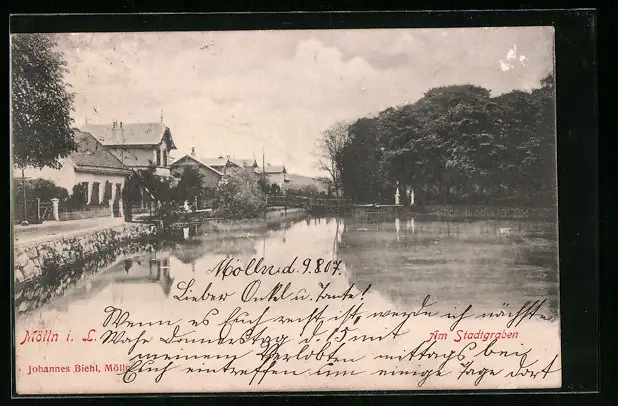 Mölln d. 9.8.07.
Lieber Onkel u. Tante!
Wenn es Euch recht ist, werde ich nächste
Mölln i. L.
Woche Donnerstag d. 15. mit
Am Stadtgraben
meinem Verlobten mittags bei
Johannes Biehl, Mölln
Euch eintreffen um einige Tage dort